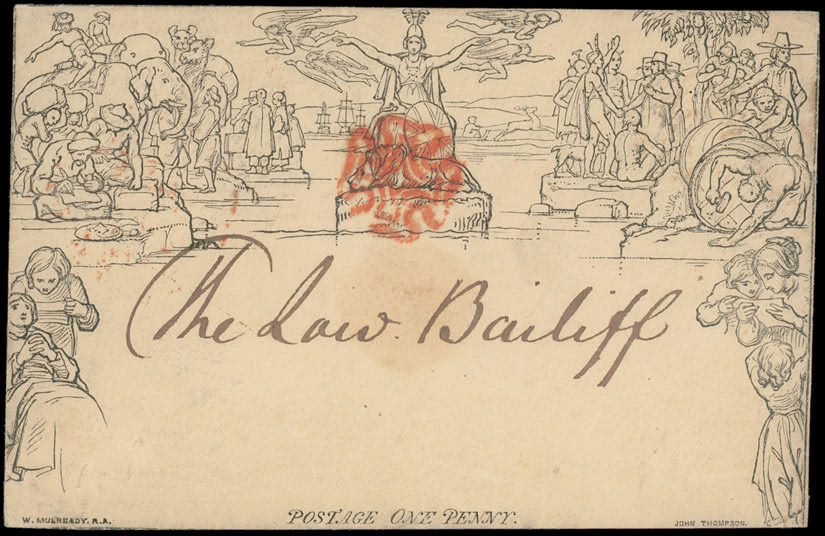 The Low. Bailiff
POSTAGE ONE PENNY.
W. MULREADY. R.A.
JOHN THOMPSON.